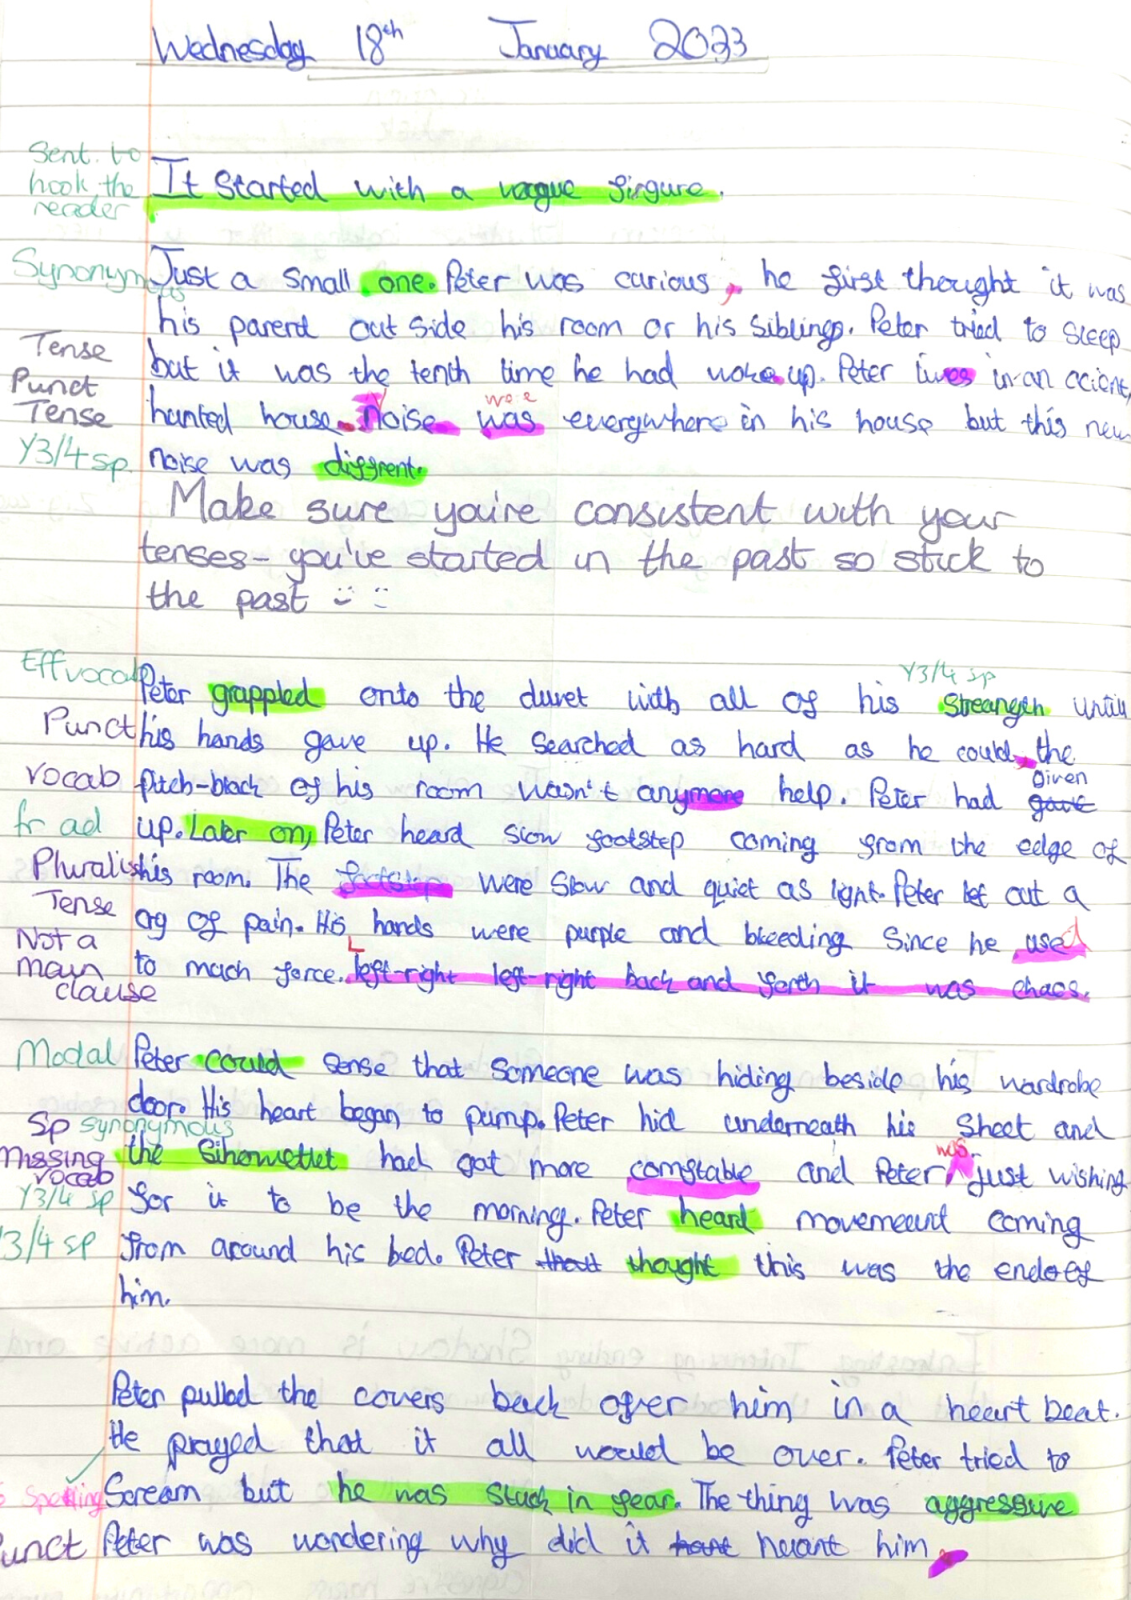 Wednesday 18th January 2023
Sent. to
hook the
reader
It started with a vague firgure.
Synonymous
Just a small one. Peter was curious, he first thought it was
his parent out side his room or his siblings. Peter tried to sleep
Tense
but it was the tenth time he had woke up. Peter lives in an acient,
Punct
Tense
were
hanted house. Noise was everywhere in his house but this new
Y3/4 sp.
noise was diffrent.
Make sure you're consistent with your
tenses - you've started in the past so stick to
the past
Eff vocab
Y3/4 sp
Peter grappled onto the duvet with all of his streangth until
Punct
his hands gave up. He searched as hard as he could, the
vocab
given
pitch-black of his room wasn't anymore help. Peter had gave
fr ad
up. Later on, Peter heard slow footstep coming from the edge of
Plurals
his room. The footstep were slow and quiet as light. Peter let out a
Tense
cry of pain. His hands were purple and bleeding since he used
Not a
main
clause
to mach force. Left-right left-right back and forth it was chaos.
Modal
Peter could sense that someone was hiding beside his wardrobe
door. His heart began to pump. Peter hid underneath his sheet and
Sp synonymous
missing
vocab
was
the sihowettet had got more comftable and Peter just wishing
Y3/4 sp
for it to be the morning. Peter heard movemeant coming
Y3/4 sp
from around his bed. Peter thought this was the end of
him.
Peter pulled the covers back ofver him in a heart beat.
He prayed that it all would be over. Peter tried to
Spelling
Scream but he was stuck in fear. The thing was aggressive
Punct
Peter was wondering why did it haunt him.